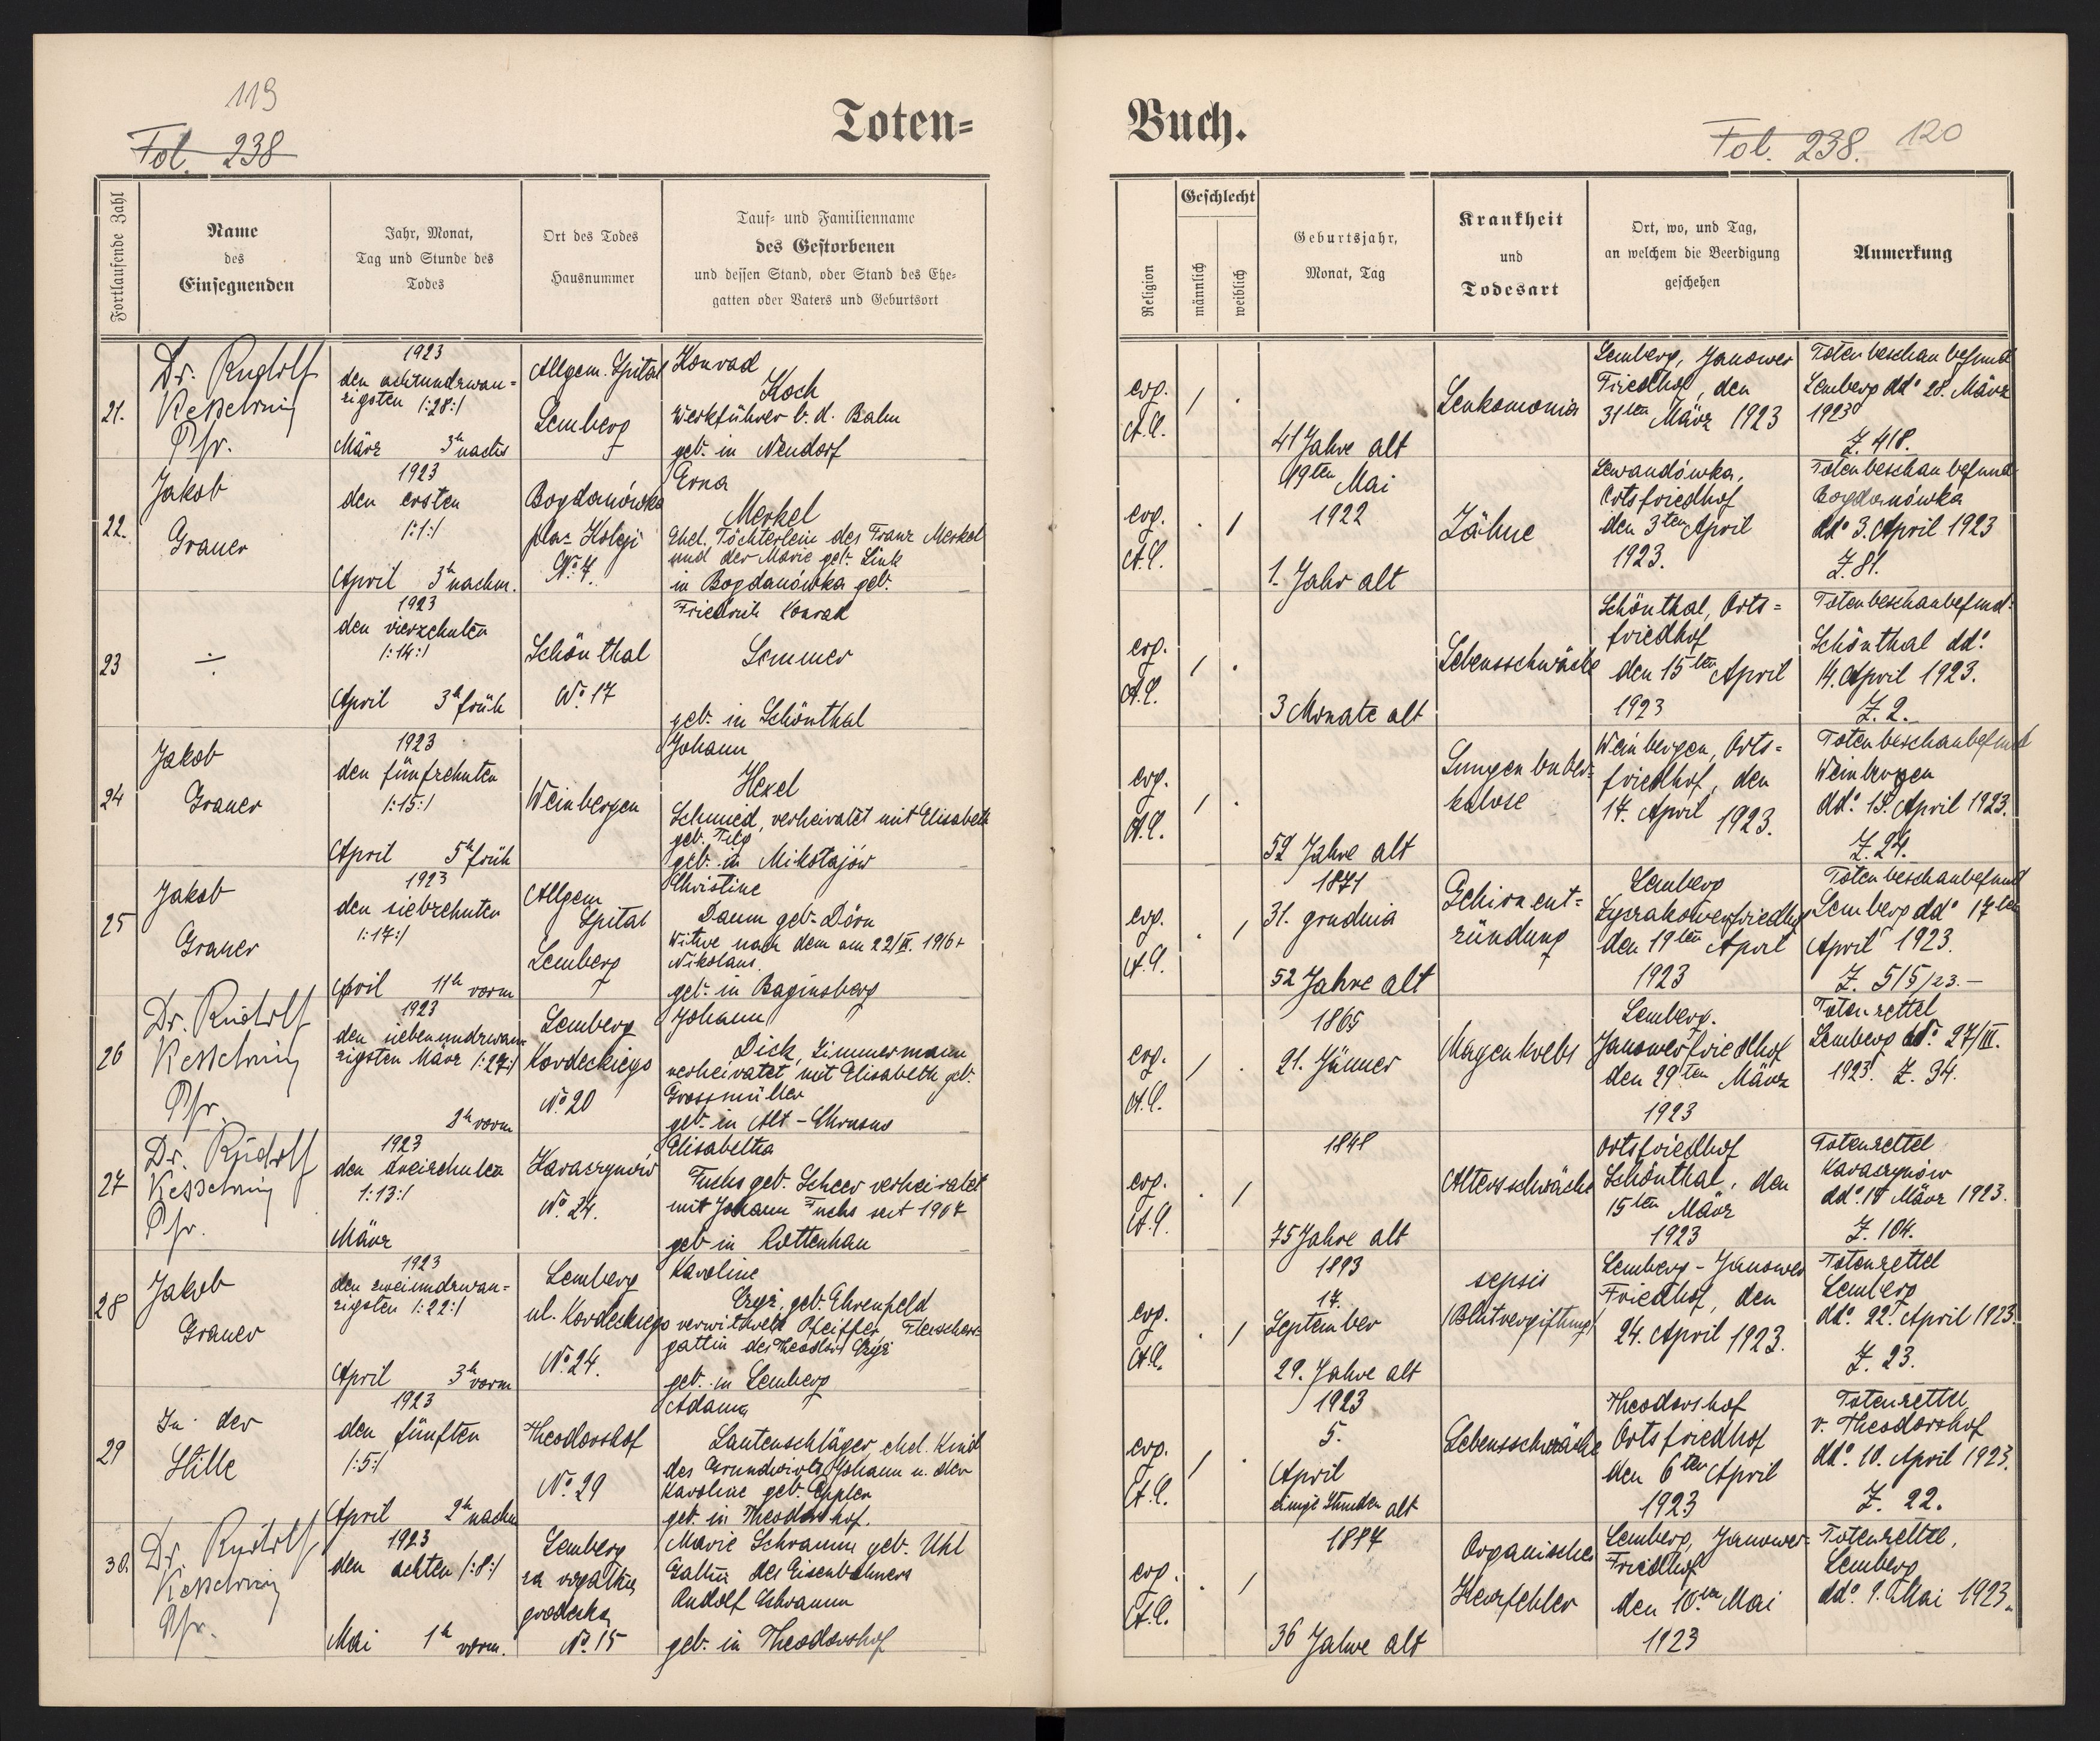 119
Fol. 238
Toten=
Fortlaufende Zahl
Name
des
Einsegnenden
Jahr, Monat,
Tag und Stunde des
Todes
Ort des Todes
Hausnummer
Tauf= und Familienname
des Gestorbenen
und dessen Stand, oder Stand des Ehe=
gatten oder Vaters und Geburtsort
21.
Dr. Rudolf
Kesselring
Pfr.
1923
den achtundzwan=
zigsten /:28:/
März 3h nachts
Allgem. Spital
Lemberg
Konrad
Koch
Werkführer b. d. Bahn
geb. in Neudorf
22.
Jakob
Graner
1923
den ersten
/:1:/
April 3h nachm.
Bogdanówka
plac Koleji
No 7.
Erna
Merkel
Ehel. Töchterlein des Franz Merkel
und der Marie geb. Link
in Bogdanówka geb.
23
÷
1923
den vierzehnten
/:14:/
April 3h früh
Schönthal
No 17
Friedrich Konrad
Semmer
geb. in Schönthal
24
Jakob
Graner
1923
den fünfzehnten
/:15:/
April 5h früh
Weinbergen
Johann
Hexel
Schmied, verheiratet mit Elisabeth
geb.
geb. in Mikołajów
25
Jakob
Graner
1923
den siebzehnten
/:17:/
April 11h vorm
Allgem
Spital
Lemberg
Christine
Daum geb. Dörn
Witwe nach dem am 22/ 1916 +
Nikolaus.
geb. in Baginsberg
26
Dr. Rudolf
Kesselring
Pfr.
1923
den siebenundzwan
zigsten März /:27:/
2h vorm
Lemberg
Kordeckiego
No 20
Johann
Dick, Zimmermann
verheiratet mit Elisabeth geb.
Grossmüller
geb. in Alt-Chrusno
27
Dr. Rudolf
Kesselring
Pfr.
1923
den dreizehnten
/:13:/
März
Karaczynów
No 24.
Elisabetha
Fuchs geb. Scheer verheiratet
mit Johann Fuchs seit 1907
geb in Rottenhan
28
Jakob
Graner
1923
den zweiundzwan=
zigsten /:22:/
April 3h vorm
Lemberg
ul. Kordeckiego
No 24.
Karoline
Czyż, geb. Ehrenfeld
verwitwete Pfeiffer Fleischers=
gattin des Theodors Czyż
geb. in Lemberg
29
In der
Stille
1923
den fünften
/:5:/
April 2h nachm
Theodorshof
No 29
Adam
Lautenschläger, ehel. Kind
des Grundwirts Johann u. der
Karoline geb. Eppler
geb. in Theodorshof.
30.
Dr. Rudolf
Kesselring
Pfr.
1923
den achten /:8:/
Mai 1h vorm.
Lemberg
za rogatką
grodecką
No 15
Marie Schramm geb. Uhl
Gattin des Eisenbahners
Rudolf Schramm
geb. in Theodorshof
Buch.
Fol. 238. 120
Religion
Geschlecht
männlich
weiblich
Geburtsjahr,
Monat, Tag
Krankheit
und
Todesart
Ort, wo, und Tag,
an welchem die Beerdigung
geschehen
Anmerkung
evg.
A.C.
41 Jahre alt
Leukomonia
Lemberg, Janower
Friedhof, den
31ten März 1923
Totenbeschaubefund
Lemberg ddo 28. März
1923
Z. 418.
evg.
A.C.
19ten Mai
1922
1. Jahr alt
Zähne
Lewandówka,
Ortsfriedhof
den 3ten April
1923.
Totenbeschaubefund
Bogdanówka
ddo 3. April 1923
Z. 81.
evg.
A.C.
3 Monate alt
Lebensschwäche
Schönthal, Orts=
friedhof
den 15ten April
1923
Totenbeschaubefund
Schönthal ddo
14. April 1923.
Z. 2.
evg.
A.C.
52 Jahre alt
Lungentuber=
kulose
Weinbergen, Orts=
friedhof, den
17. April 1923.
Totenbeschaubefund
Weinbergen
ddo 15. April 1923.
Z. 24.
evg.
A.C.
1871
31. grudnia
52 Jahre alt
Gehirnent=
zündung
Lemberg
Łyczakowerfriedhof
den 19ten April
1923
Totenbeschaubefund
Lemberg ddo 17ten
April 1923.
Z. 515/23.—
evg.
A.C.
1865
21. Jänner
Magenkrebs
Lemberg.
Janowerfriedhof
den 29ten März
1923
Totenzettel
Lemberg ddo 27/III.
1923. Z. 34.
evg.
A.C.
1848
75 Jahre alt
Altersschwäche
Ortsfriedhof
Schönthal, den
15ten März
1923
Totenzettel
Karaczynów
ddo 14 März 1923.
Z. 104.
evg.
A.C.
1893
17.
September
29. Jahre alt
sepsis
/Blutvergiftung/
Lemberg-Janower
Friedhof, den
24. April 1923.
Totenzettel
Lemberg
ddo 22. April 1923.
Z. 23.
evg.
A.C.
1923
5.
April
einige Stunden alt
Lebensschwäche
Theodorshof
Ortsfriedhof
den 6ten April
1923
Totenzettel
v. Theodorshof
ddo 10. April 1923.
Z. 22.
evg.
A.C.
1887
36 Jahre alt
Organischer
Herzfehler
Lemberg, Janower=
Friedhof
den 10ten Mai
1923
Totenzettel,
Lemberg
ddo 9. Mai 1923.